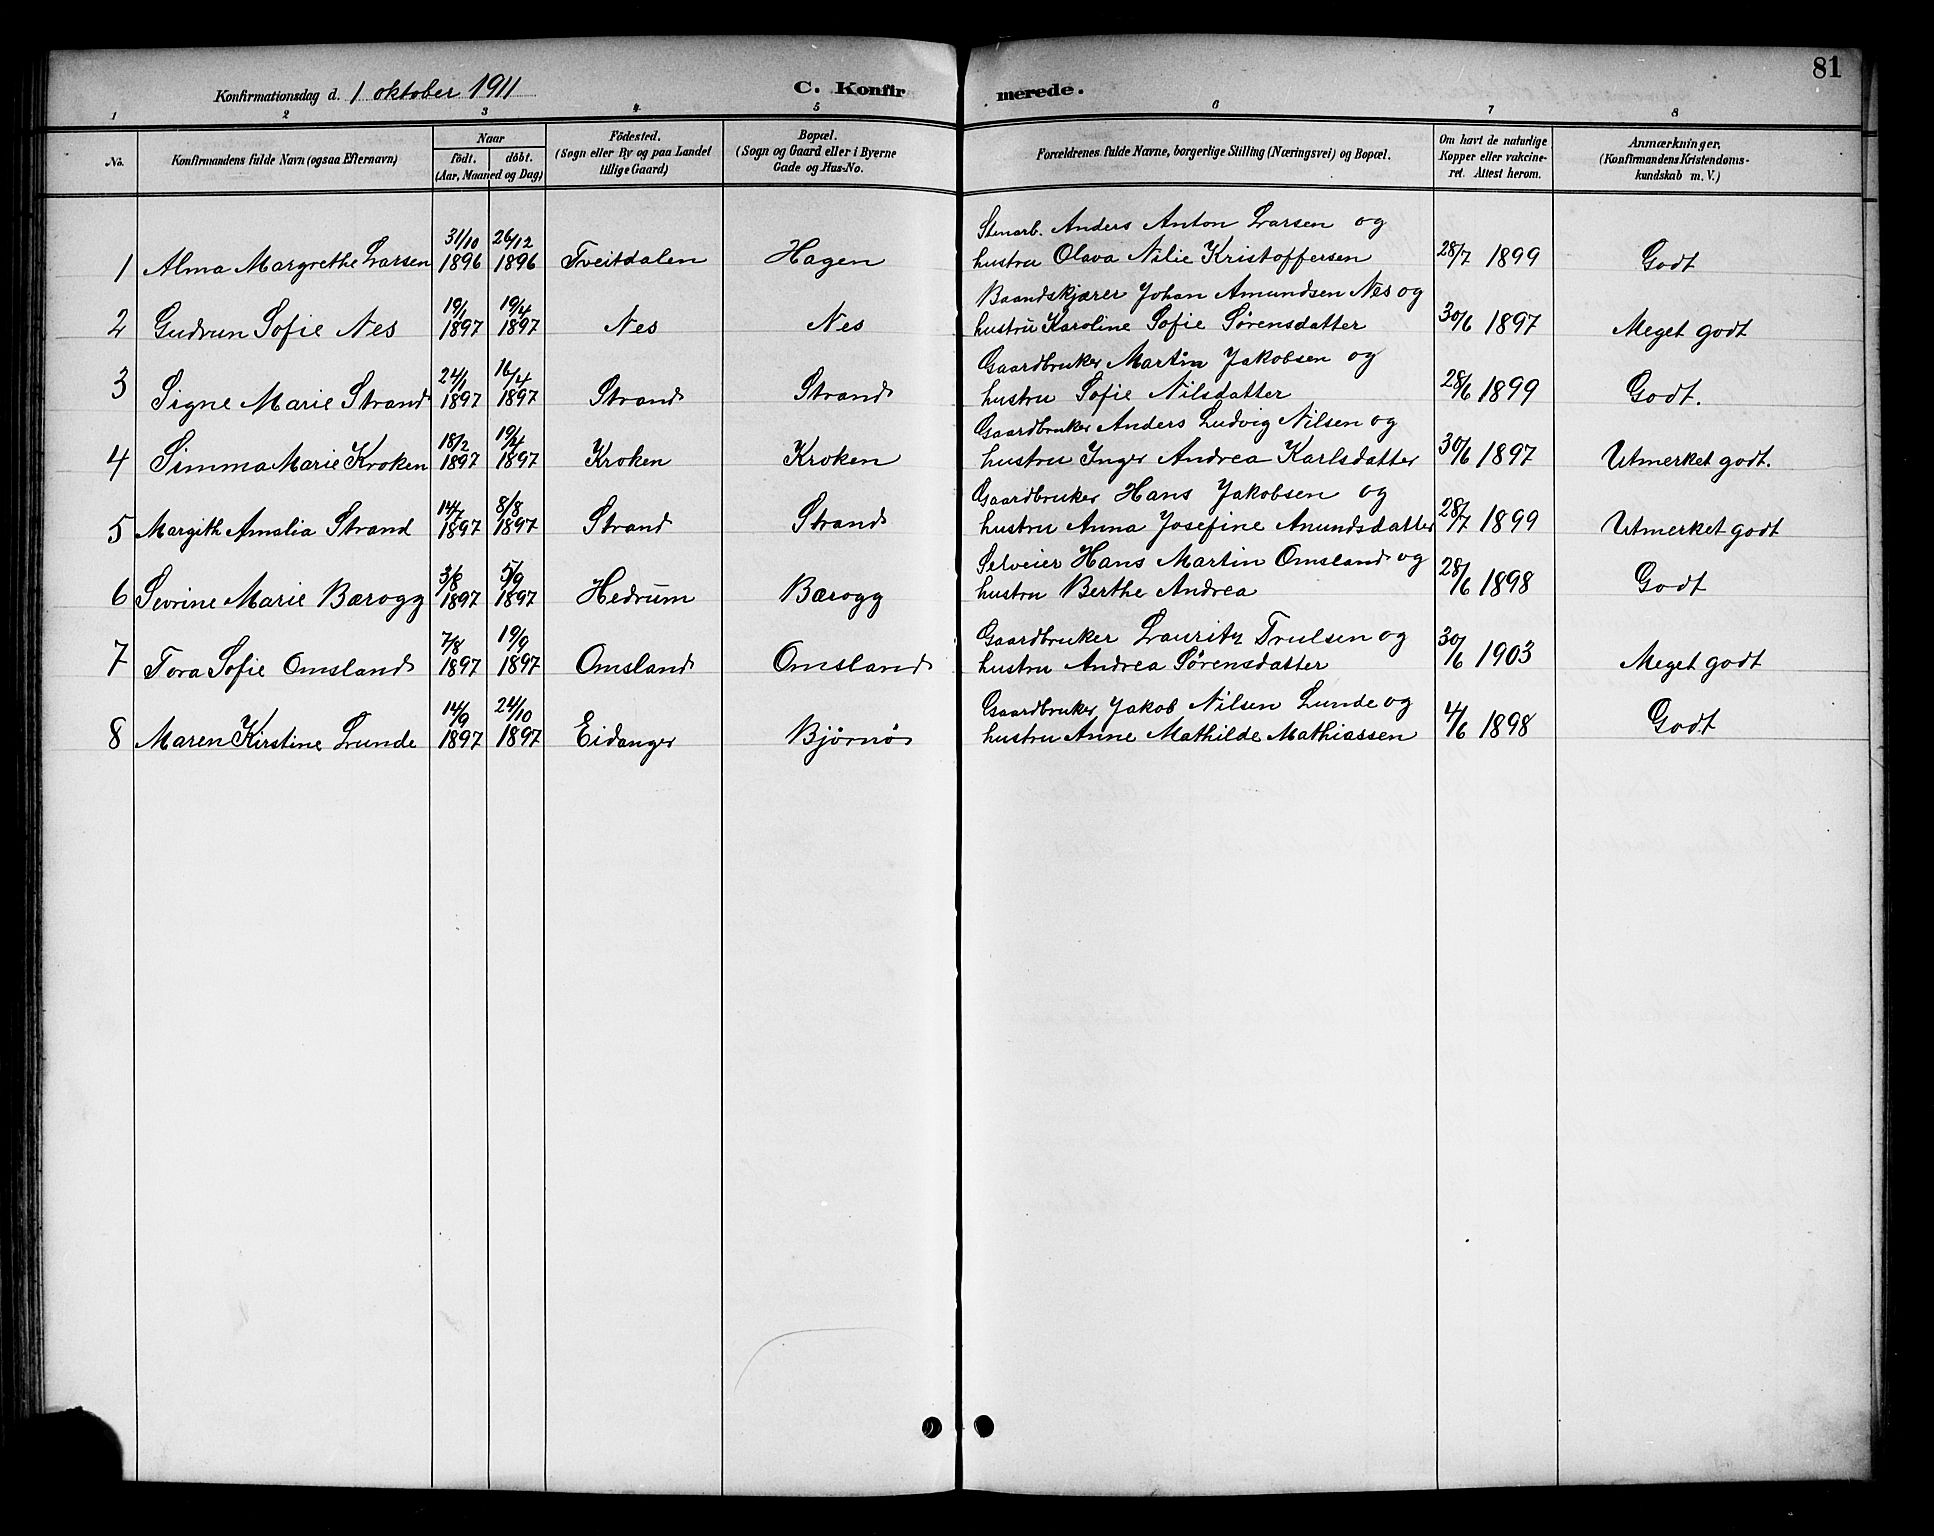 81
Konfirmationsdag d. 1 oktober 1911 C. Konfirmerede.
1 2 3 4 5 6 7 8
No. Konfirmandens fulde Navn (ogsaa Efternavn) Naar födt. döbt. (Aar, Maaned og Dag) Födested. (Sogn eller By og paa Landet tillige Gaard) Bopæl. (Sogn og Gaard eller i Byerne Gade og Hus-No. Forældrenes fulde Navne, borgerlige Stilling (Næringsvei) og Bopæl. Om havt de naturlige Kopper eller vakcineret. Attest herom. Anmærkninger, (Konfirmandens Kristendomskundskab m. V.)
31/10 26/12 Stenarb. Anders Anton Larsen og
1 Alma Margrethe Larsen 1896 1896 Tveitdalen Hagen hustru Olava Nilie Kristoffersen 28/7 1899 Godt
19/1 19/4 Baandskjærer Johan Amundsen Nes og
2 Gudrun Sofie Nes 1897 1897 Nes Nes hustru Karoline Sofie Sørensdatter 30/6 1897 Meget godt
24/1 16/4 Gaardbruker Martin Jakobsen og
3 Signe Marie Strand 1897 1897 Strand Strand hustru Sofie Nilsdatter 28/6 1899 Godt.
18/2 19/4 Gaardbruker Anders Ludvig Nilsen og
4 Simma Marie Kroken 1897 1897 Kroken Kroken hustru Inger Andrea Karlsdatter 30/6 1897 Utmerket godt.
14/7 8/8 Gaardbruker Hans Jakobsen og
5 Margith Amalia Strand 1897 1897 Strand Strand hustru Anna Josefine Anundsdatter 28/7 1899 Utmerket godt
3/8 5/9 Selveier Hans Martin Omsland og
6 Sevrine Marie Bærogg 1897 1897 Hedrum Bærogg hustru Berthe Andrea 28/6 1898 Godt
7/8 19/9 Gaardbruker Lauritz Trulsen og
7 Tora Sofie Omsland 1897 1897 Omsland Omsland hustru Andrea Sørensdatter 30/6 1903 Meget godt
14/9 24/10 Gaardbruker Jakob Nilsen Lunde og
8 Maren Kirstine Lunde 1897 1897 Eidanger Bjørnø hustru Anne Mathilde Mathiassen 4/6 1898 Godt